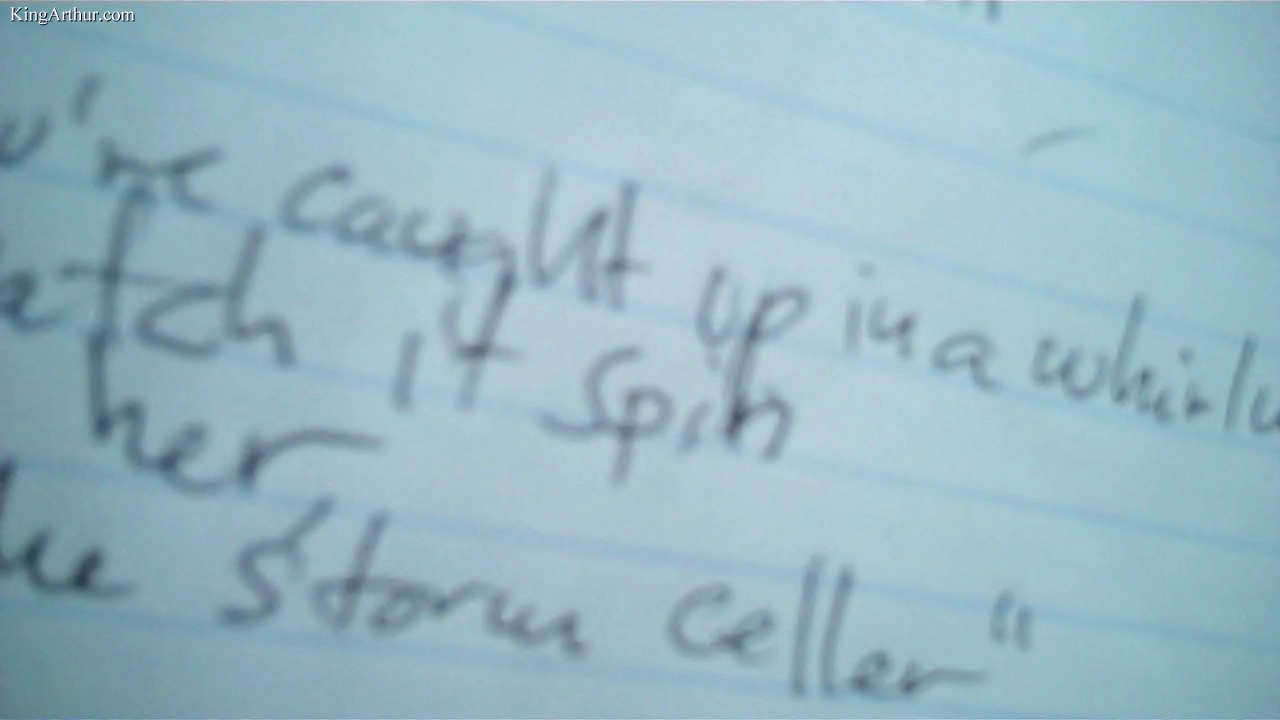 KingArthur.com
u're caught up in a whirlw
atch it spin
her
he storm celler"